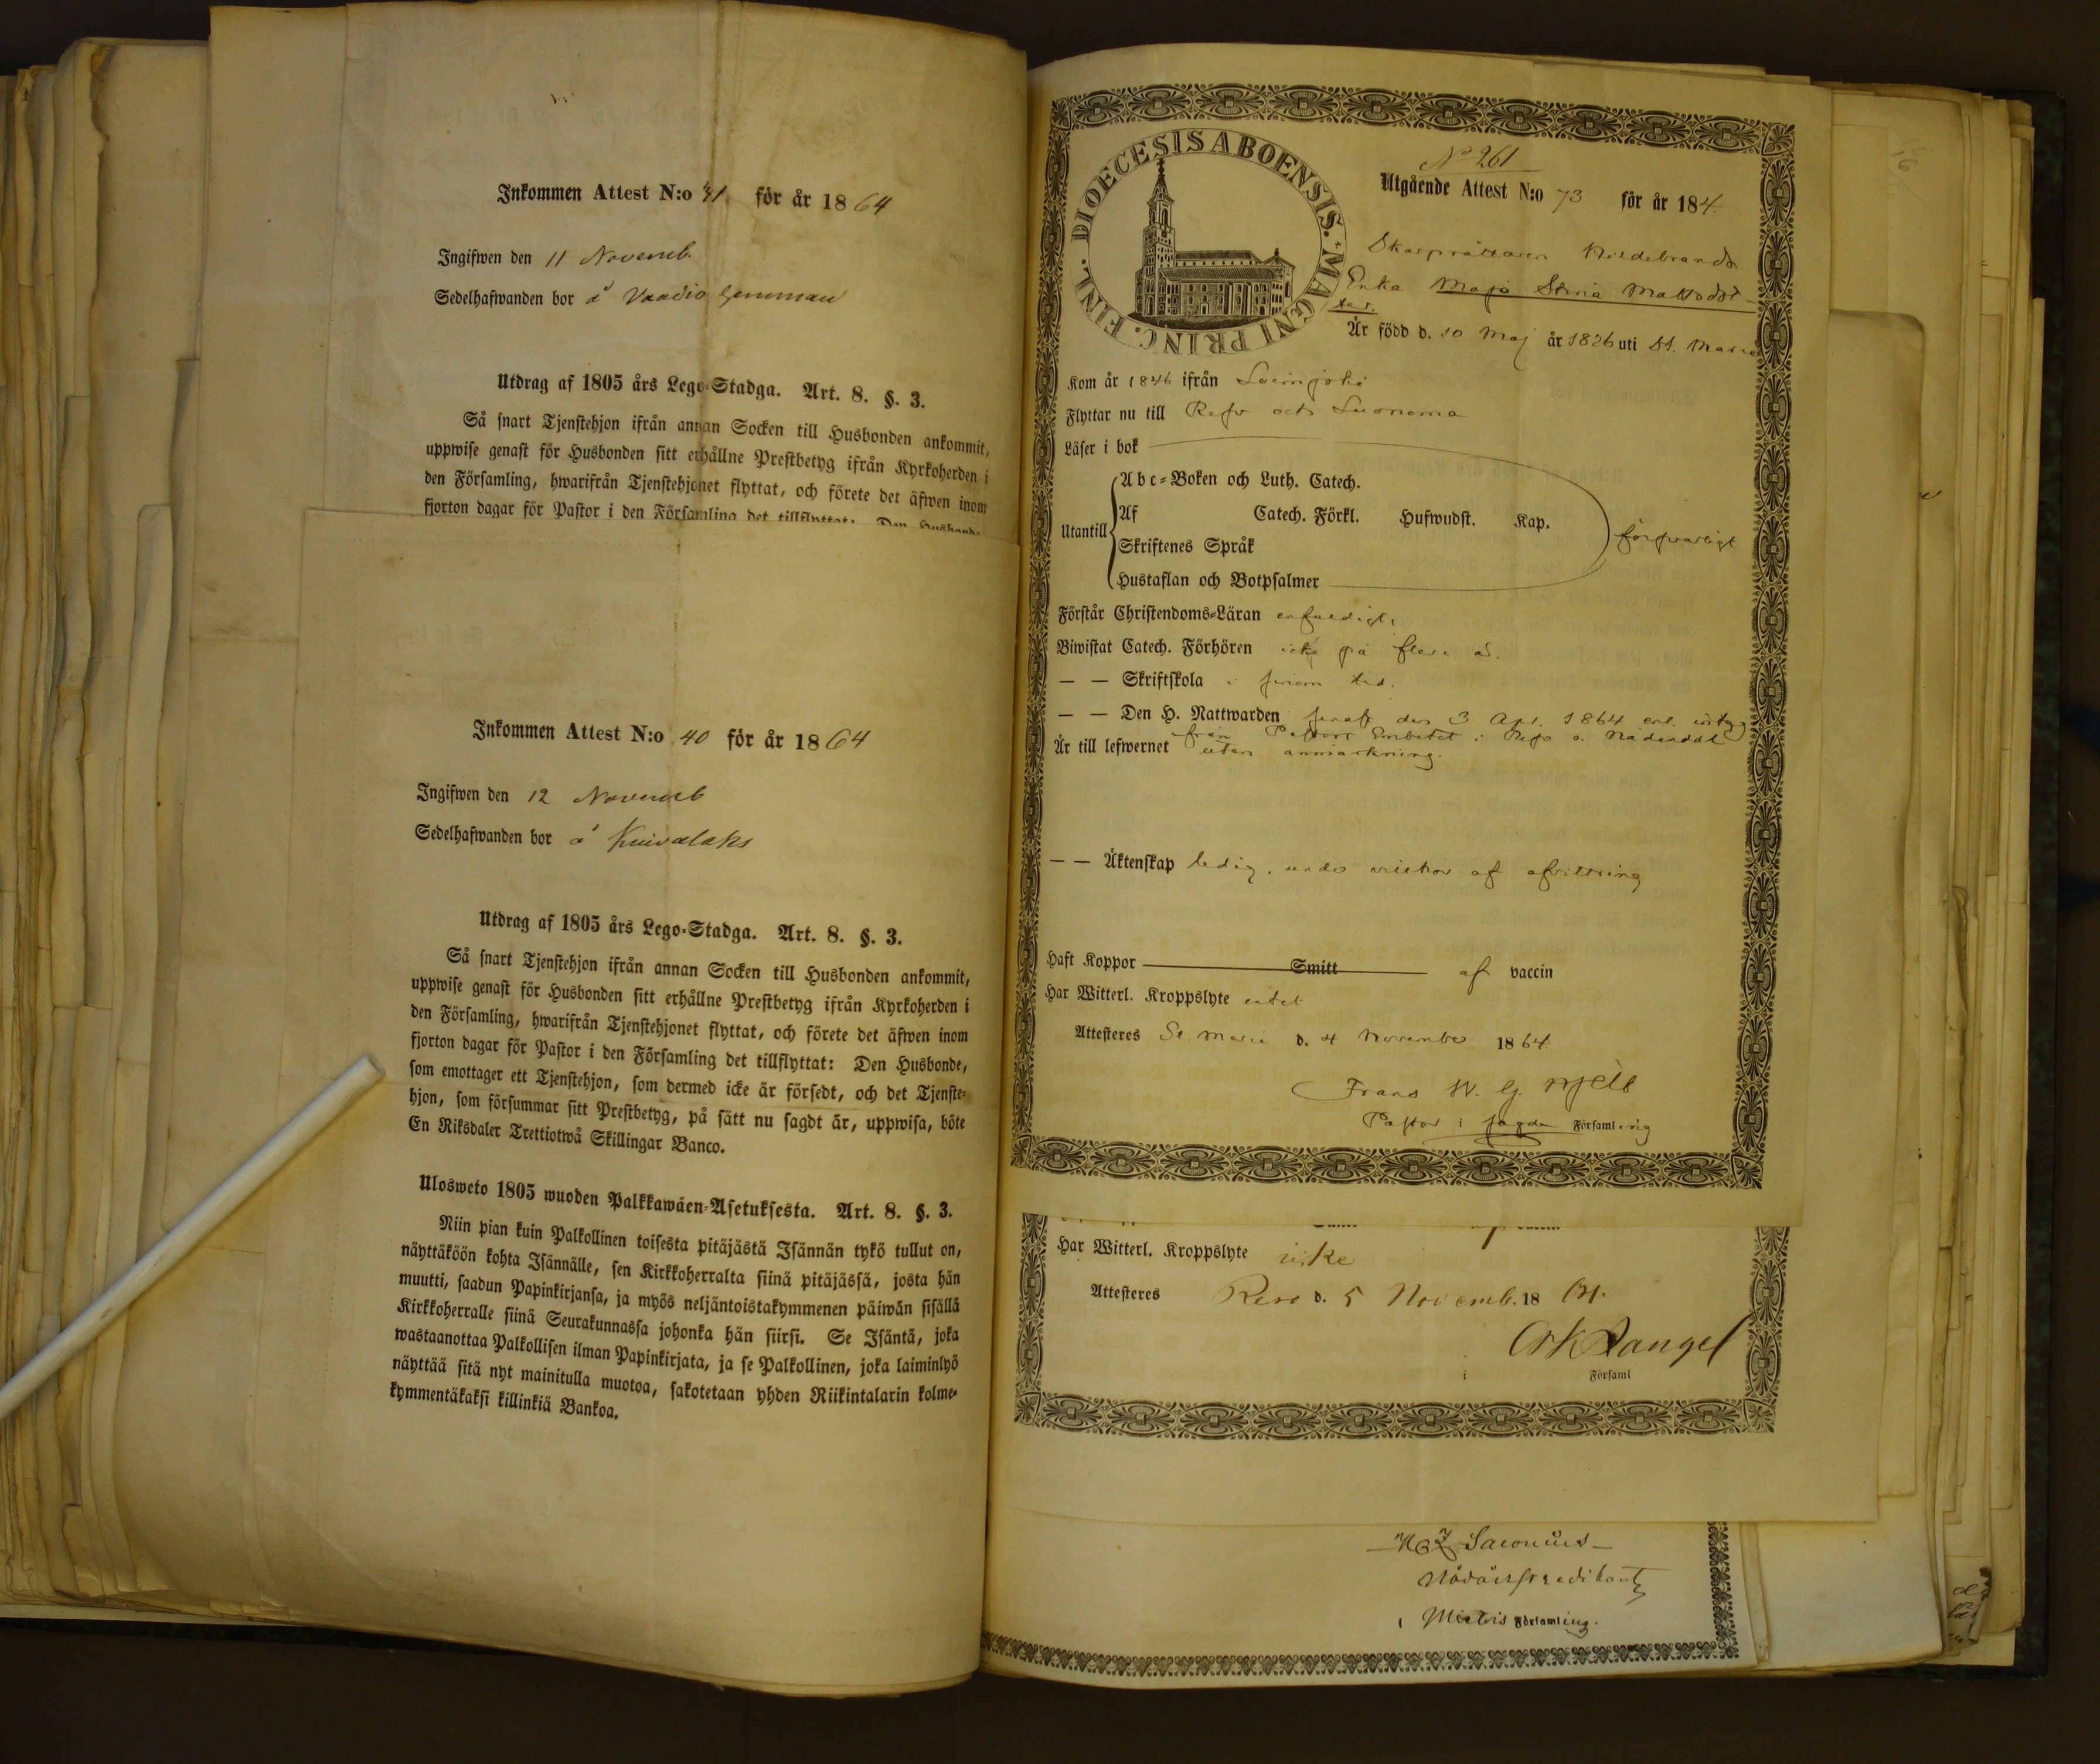 Inkommen Attest N:o 41 för år 1864
Ingifwen den 11 Novemb.
Sedelhafwanden bor å Vaadio
Utdrag af 1805 års Lego-Stadga. Art. 8. §. 3.
Så snart Tjenstehjon ifrån annan Socken till Husbonden ankommit,
uppwise genast för Husbonden sitt erhållne Prestbetyg ifrån Kyrkoherden i
den Församling, hwarifrån Tjenstehjonet flyttat, och förete det äfwen inom
fjorton dagar för Pastor i den Församling det tillflyttat: Den Husbonde,
Inkommen Attest N:o 40 för år 1864
Ingifwen den 12 Novemb
Sedelhafwanden bor å Kuivalaks
Utdrag af 1805 års Lego-Stadga. Art. 8. §. 3.
Så snart Tjenstehjon ifrån annan Socken till Husbonden ankommit,
uppwise genast för Husbonden sitt erhållne Prestbetyg ifrån Kyrkoherden i
den Församling, hwarifrån Tjenstehjonet flyttat, och förete det äfwen inom
fjorton dagar för Pastor i den Församling det tillflyttat: Den Husbonde,
som emottager ett Tjenstehjon, som dermed icke är försedt, och det Tjenste-
hjon, som försummar sitt Prestbetyg, på sätt nu sagdt är, uppwisa, böte
En Riksdaler Trettiotwå Skillingar Banco.
Ulosweto 1805 wuoden Palkkawäen-Asetuksesta. Art. 8. §. 3.
Niin pian kuin Palkollinen toisesta pitäjästä Isännän tykö tullut on,
näyttäköön kohta Isännälle, sen Kirkkoherralta siinä pitäjässä, josta hän
muutti, saadun Papinkirjansa, ja myös neljäntoistakymmenen päiwän sisällä
Kirkkoherralle siinä Seurakunnassa johonka hän siirsi. Se Isäntä, joka
wastaanottaa Palkollisen ilman Papinkirjata, ja se Palkollinen, joka laiminlyö
näyttää sitä nyt mainitulla muotoa, sakotetaan yhden Riikintalarin kolme-
kymmentäkaksi killinkiä Bankoa.
DIOECESIS ABOENSIS. MAGNI PRINC. FINL.
No 261
Utgående Attest N:o 73 för år 184
Skarprättaren Hildebrands
Enka Maja Stina Mattsdot-
ter.
Är född d. 10 Maj år 1826 uti St. Marie
Kom år 1846 ifrån Loimjoki
Flyttar nu till Reso och Luonnma
Läser i bok
Utantill
Abc-Boken och Luth. Catech.
Af Catech. Förkl. Hufwudst. Kap.
Skriftenes Språk
Hustaflan och Botpsalmer
försvarligt
Förstår Christendoms-Läran enfaldigt.
Biwistat Catech. Förhören icke på flere år.
— — Skriftskola i sinom tid.
— — Den H. Nattwarden senast den 3 Apr. 1864 enl. intyg
från Pastors Embetet i Reso o. Nådendal
Är till lefwernet utan anmärkning.
— — Äktenskap ledig, under villkor af afvittring
Haft Koppor Smitt af vaccin
Har Witterl. Kroppslyte intet
Attesteres St. Marie d. 4 November 1864
Frans W. G. Hjelt
Pastor i sagde Församling
Har Witterl. Kroppslyte icke
Attesteres Reso d. 5 Novemb. 18 64.
i Församl
Nådårspredikant
i Mietois Församling.